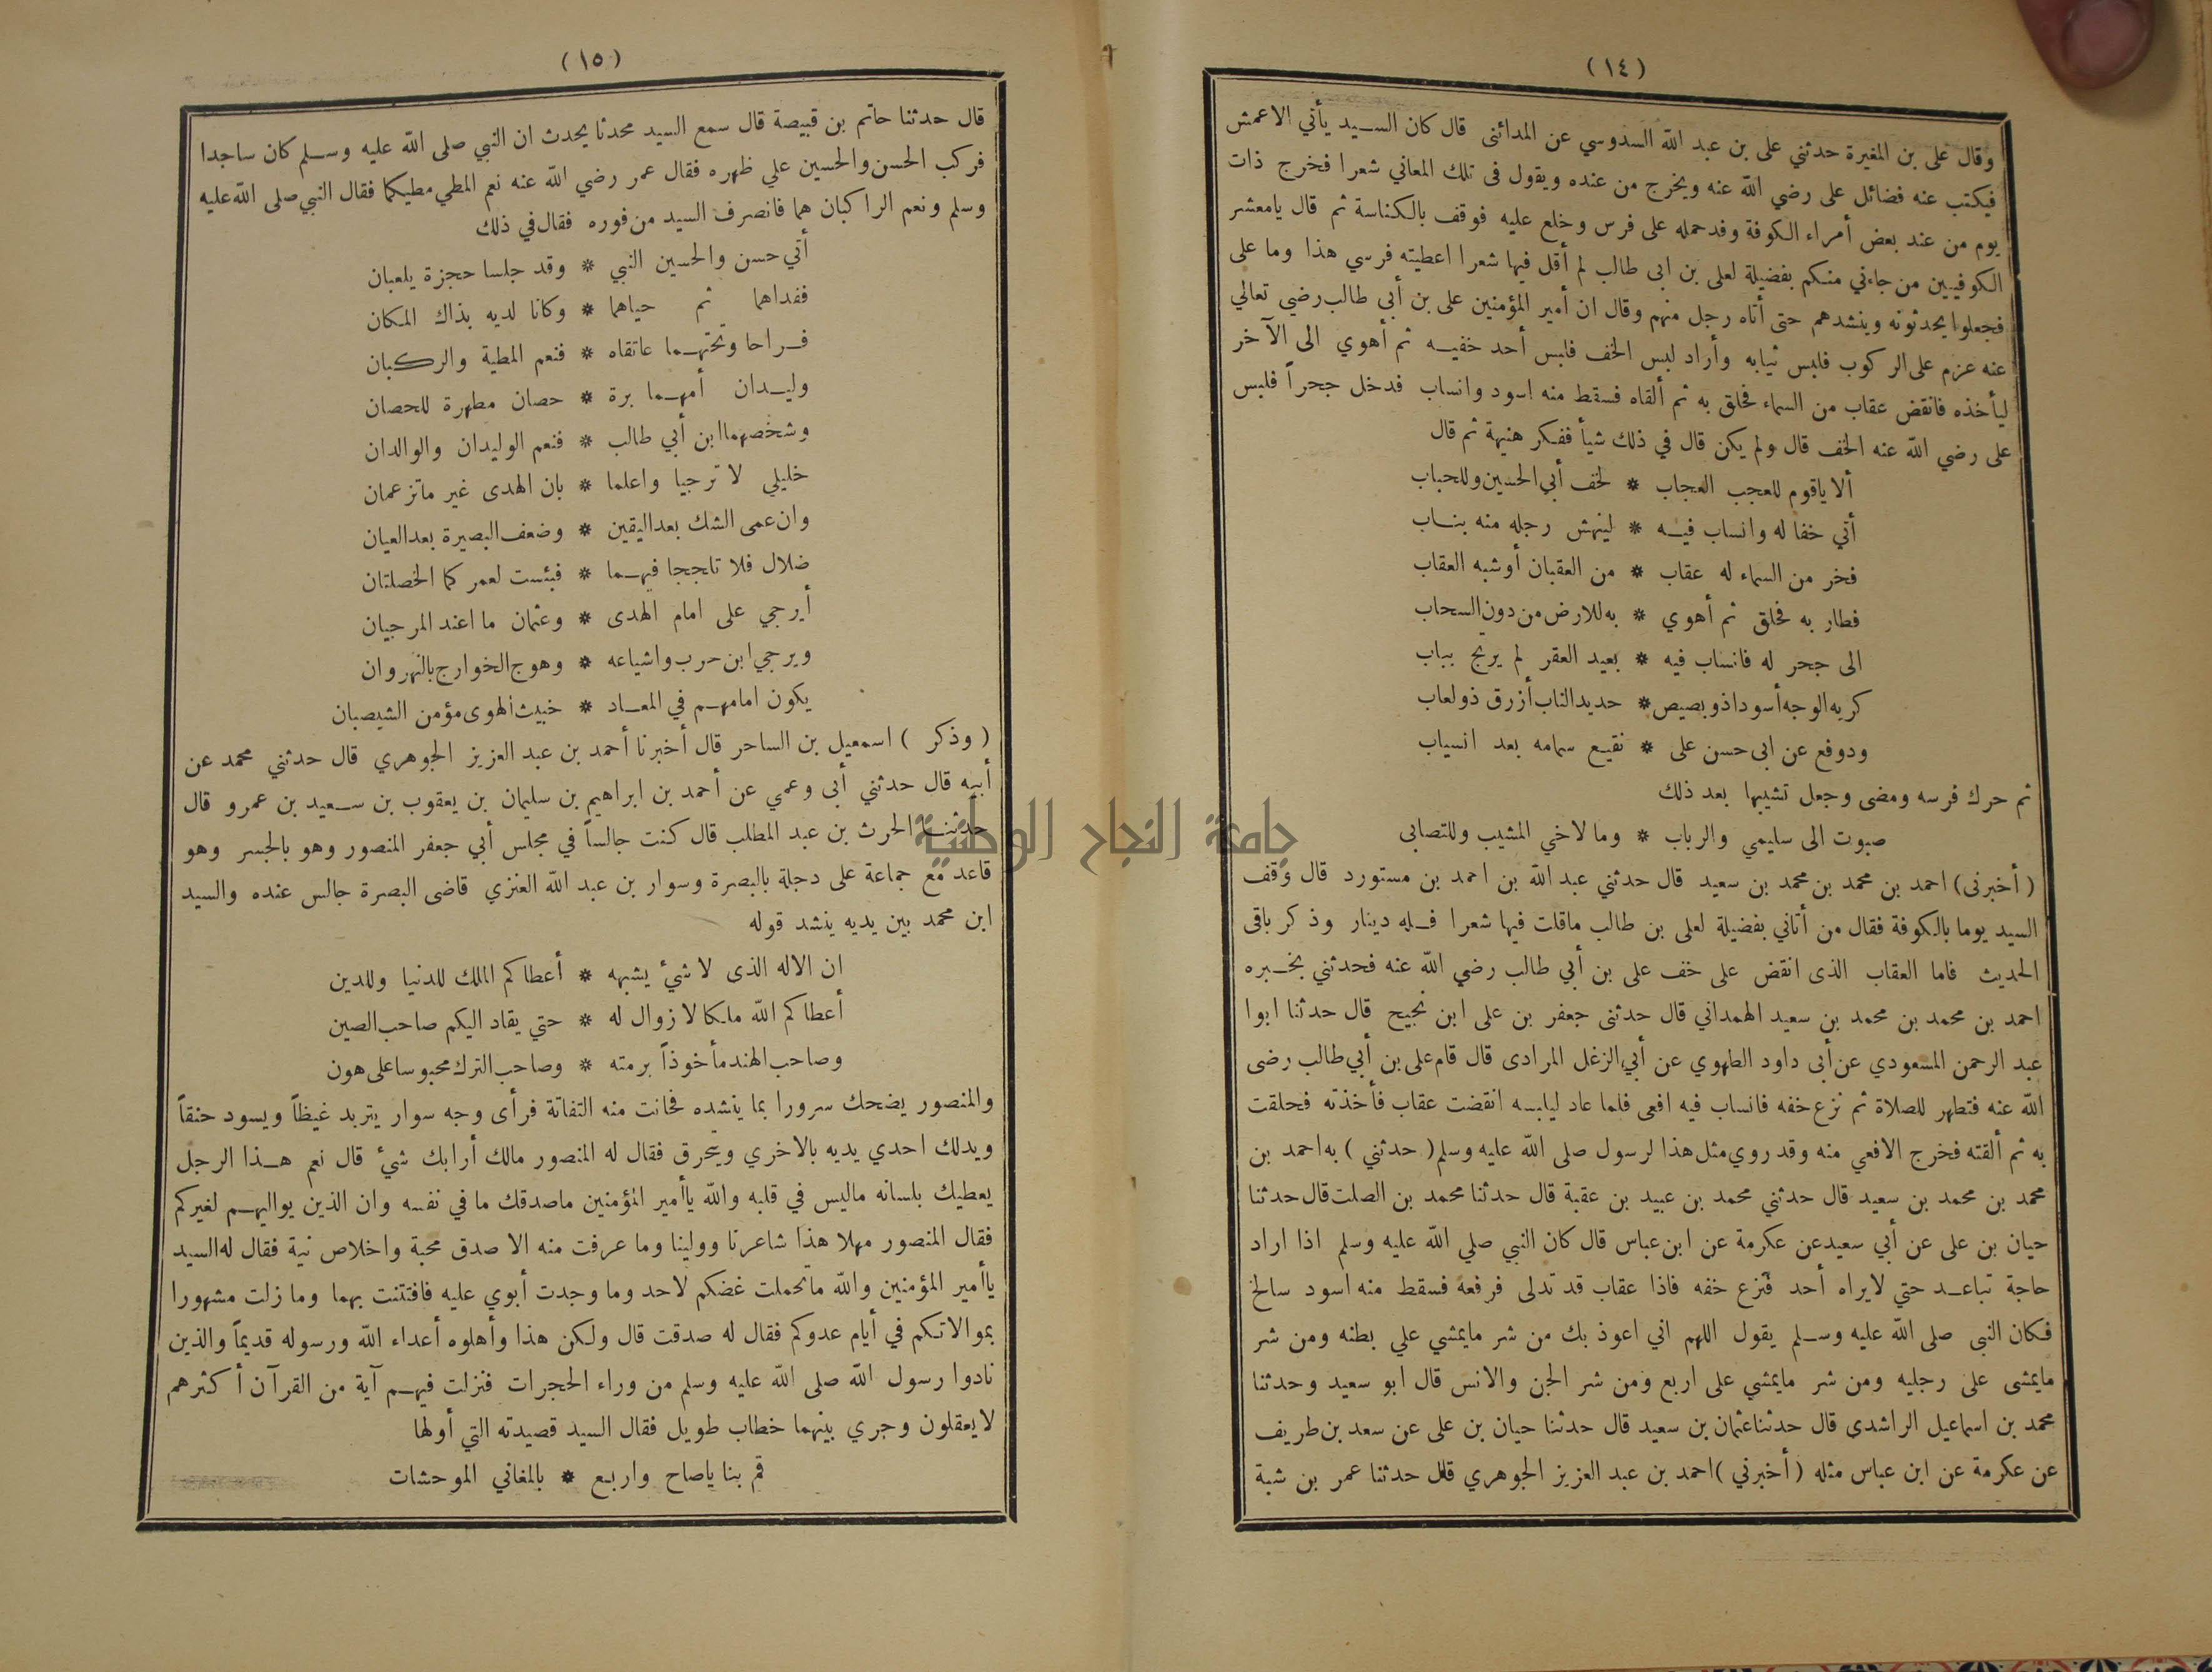 (١٤)
وقال على بن المغيرة حدثني على بن عبد الله السدوسي عن المدائنى قال كان السيد يأتي الاعمش
فيكتب عنه فضائل على رضي الله عنه ويخرج من عنده ويقول فى تلك المعاني شعرا فخرج ذات
يوم من عند بعض أمراء الكوفة وقد حمله على فرس وخلع عليه فوقف بالكناسة ثم قال يامعشر
الكوفيين من جاءني منكم بفضيلة لعلى بن ابى طالب لم أقل فيها شعرا اعطيته فرسي هذا وما على
فجعلوا يحدثونه وينشدهم حتى أتاه رجل منهم وقال ان أمير المؤمنين على بن أبي طالب رضي تعالي
عنه عزم على الركوب فلبس ثيابه وأراد لبس الخف فلبس أحد خفيه ثم أهوي الى الآخر
ليأخذه فانقض عقاب من السماء فحلق به ثم ألقاه فسقط منه اسود وانساب فدخل جحراً فلبس
على رضي الله عنه الخف قال ولم يكن قال في ذلك شيأ ففكر هنيهة ثم قال
ألا ياقوم للعجب العجاب * لخف أبي الحسين وللحباب
أتي خفا له وانساب فيه * لينهش رجله منه بناب
فخر من السماء له عقاب * من العقبان أوشبه العقاب
فطار به فحلق ثم أهوي * به للارض من دون السحاب
الى جحر له فانساب فيه * بعيد القعر لم يرتج بباب
كريه الوجه أسود اذوبصيص * حديد الناب أزرق ذولعاب
ودوفع عن ابى حسن على * نقيع سمامه بعد انسياب
ثم حرك فرسه ومضى وجعل تشبيها بعد ذلك
صبوت الى سليمي والرباب * وما لاخي المشيب وللتصابى
(أخبرنى) احمد بن محمد بن محمد بن سعيد قال حدثني عبد الله بن احمد بن مستورد قال وقف
السيد يوما بالكوفة فقال من أتاني بفضيلة لعلى بن طالب ماقلت فيها شعرا فله دينار وذكر باقى
الحديث فاما العقاب الذى انقض على خف على بن أبي طالب رضي الله عنه فحدثني بخبره
احمد بن محمد بن محمد بن سعيد الهمداني قال حدثنى جعفر بن على ابن نجيح قال حدثنا ابوا
عبد الرحمن المسعودي عن أبى داود الطهوي عن أبي الزغل المرادى قال قام على بن أبي طالب رضى
الله عنه فتطهر للصلاة ثم نزع خفه فانساب فيه افعى فلما عاد ليلبسه انقضت عقاب فأخذته فحلقت
به ثم ألقته فخرج الافعي منه وقد روي مثل هذا لرسول صلى الله عليه وسلم (حدثني) به احمد بن
محمد بن محمد بن سعيد قال حدثني محمد بن عبيد بن عقبة قال حدثنا محمد بن الصلت قال حدثنا
حيان بن على عن أبي سعيد عن عكرمة عن ابن عباس قال كان النبي صلي الله عليه وسلم اذا اراد
حاجة تباعد حتي لايراه أحد فنزع خفه فاذا عقاب قد تدلى فرفعه فسقط منه اسود سالخ
فكان النبى صلى الله عليه وسلم يقول اللهم اني اعوذ بك من شر مايمشي علي بطنه ومن شر
مايمشى على رجليه ومن شر مايمشي على اربع ومن شر الجن والانس قال ابو سعيد وحدثنا
محمد بن اسماعيل الراشدى قال حدثنا عثمان بن سعيد قال حدثنا حيان بن على عن سعد بن طريف
عن عكرمة عن ابن عباس مثله (أخبرني) احمد بن عبد العزيز الجوهري قال حدثنا عمر بن شبة
(١٥)
قال حدثنا حاتم بن قبيصة قال سمع السيد محدثا يحدث ان النبي صلى الله عليه وسلم كان ساجدا
فركب الحسن والحسين علي ظهره فقال عمر رضي الله عنه نعم المطي مطيكما فقال النبي صلى الله عليه
وسلم ونعم الراكبان هما فانصرف السيد من فوره فقال في ذلك
أتي حسن والحسين النبي * وقد جلسا حجزة يلعبان
ففداهما ثم حياهما * وكانا لديه بذاك المكان
فراحا وتحتهما عاتقاه * فنعم المطية والركبان
وليدان أمهما برة * حصان مطهرة للحصان
وشخصهما ابن أبي طالب * فنعم الوليدان والوالدان
خليلي لا ترجيا واعلما * بان الهدى غير ماتزعمان
وان عمى الشك بعد اليقين * وضعف البصيرة بعد العيان
ضلال فلا تلججا فيهما * فبئست لعمركما الخصلتان
أيرجي على امام الهدى * وعثمان ما اعند المرجيان
ويرجي ابن حرب واشياعه * وهوج الخوارج بالنهروان
يكون امامهم في المعاد * خبيث الهوى مؤمن الشيصبان
(وذكر) اسمعيل بن الساحر قال أخبرنا أحمد بن عبد العزيز الجوهري قال حدثني محمد عن
أبيه قال حدثني أبى وعمي عن أحمد بن ابراهيم بن سليمان بن يعقوب بن سعيد بن عمرو قال
حدثنا الحرث بن عبد المطلب قال كنت جالساً في مجلس أبي جعفر المنصور وهو بالجسر وهو
قاعد مع جماعة على دجلة بالبصرة وسوار بن عبد الله العنزي قاضى البصرة جالس عنده والسيد
ابن محمد بين يديه ينشد قوله
ان الاله الذى لا شيء يشبهه * أعطاكم الملك للدنيا وللدين
أعطاكم الله ملكا لا زوال له * حتي يقاد اليكم صاحب الصين
وصاحب الهند مأخوذاً برمته * وصاحب الترك محبوسا على هون
والمنصور يضحك سرورا بما ينشده فحانت منه التفاتة فرأى وجه سوار يتربد غيظاً ويسود حنقاً
ويدلك احدي يديه بالاخري ويتحرق فقال له المنصور مالك أرابك شيء قال نعم هذا الرجل
يعطيك بلسانه ماليس في قلبه والله ياأمير المؤمنين ماصدقك ما في نفسه وان الذين يواليهم لغيركم
فقال المنصور مهلا هذا شاعرنا وولينا وما عرفت منه الا صدق محبة واخلاص نية فقال له السيد
ياأمير المؤمنين والله ماتحملت غضكم لاحد وما وجدت أبوي عليه فافتتنت بهما وما زلت مشهورا
بموالاتكم في أيام عدوكم فقال له صدقت قال ولكن هذا وأهلوه أعداء الله ورسوله قديماً والذين
نادوا رسول الله صلى الله عليه وسلم من وراء الحجرات فنزلت فيهم آية من القرآن أكثرهم
لايعقلون وجري بينهما خطاب طويل فقال السيد قصيدته التي أولها
قم بنا ياصاح واربع * بالمغاني الموحشات
جامعة النجاح الوطنية